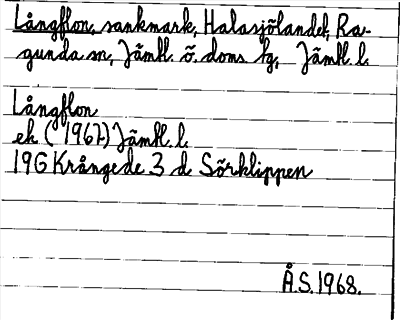 Långflon, sankmark, Halasjölandet, Ra-
gunda sn, Jämtl. ö. doms tg, Jämtl. l.
Långflon
ek (1967) Jämtl. l.
19G Krångede 3 d Sörklippen
Å.S. 1968.